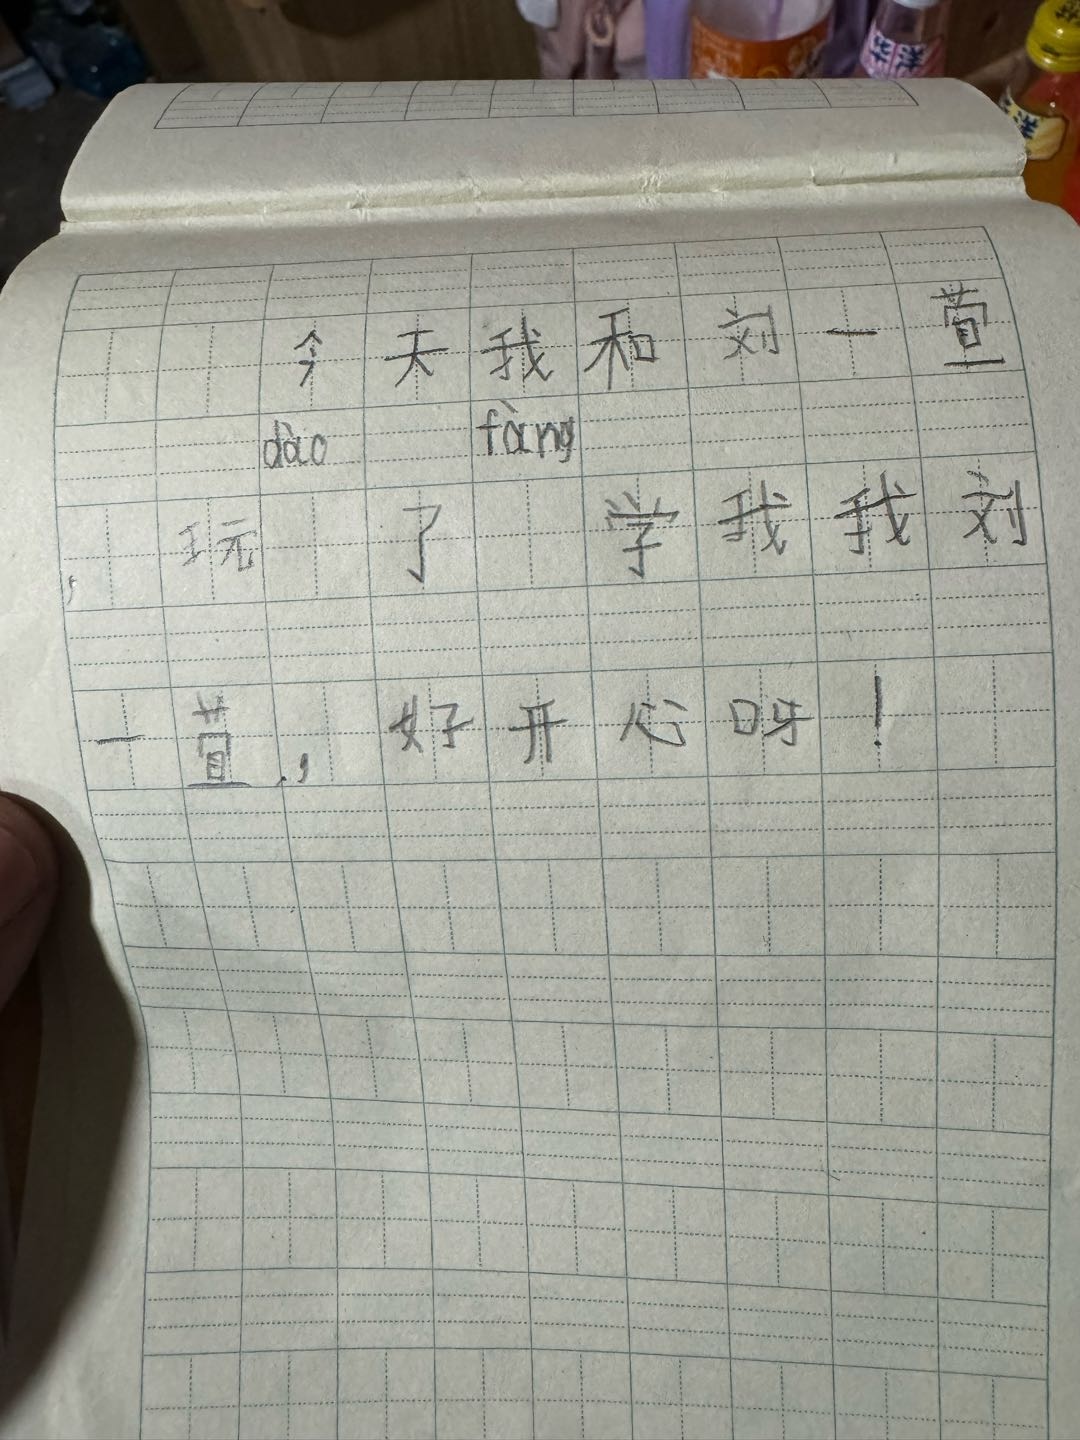 今天我和刘一萱
dào fàng
，玩 了 学我我刘
一萱，好开心呀！